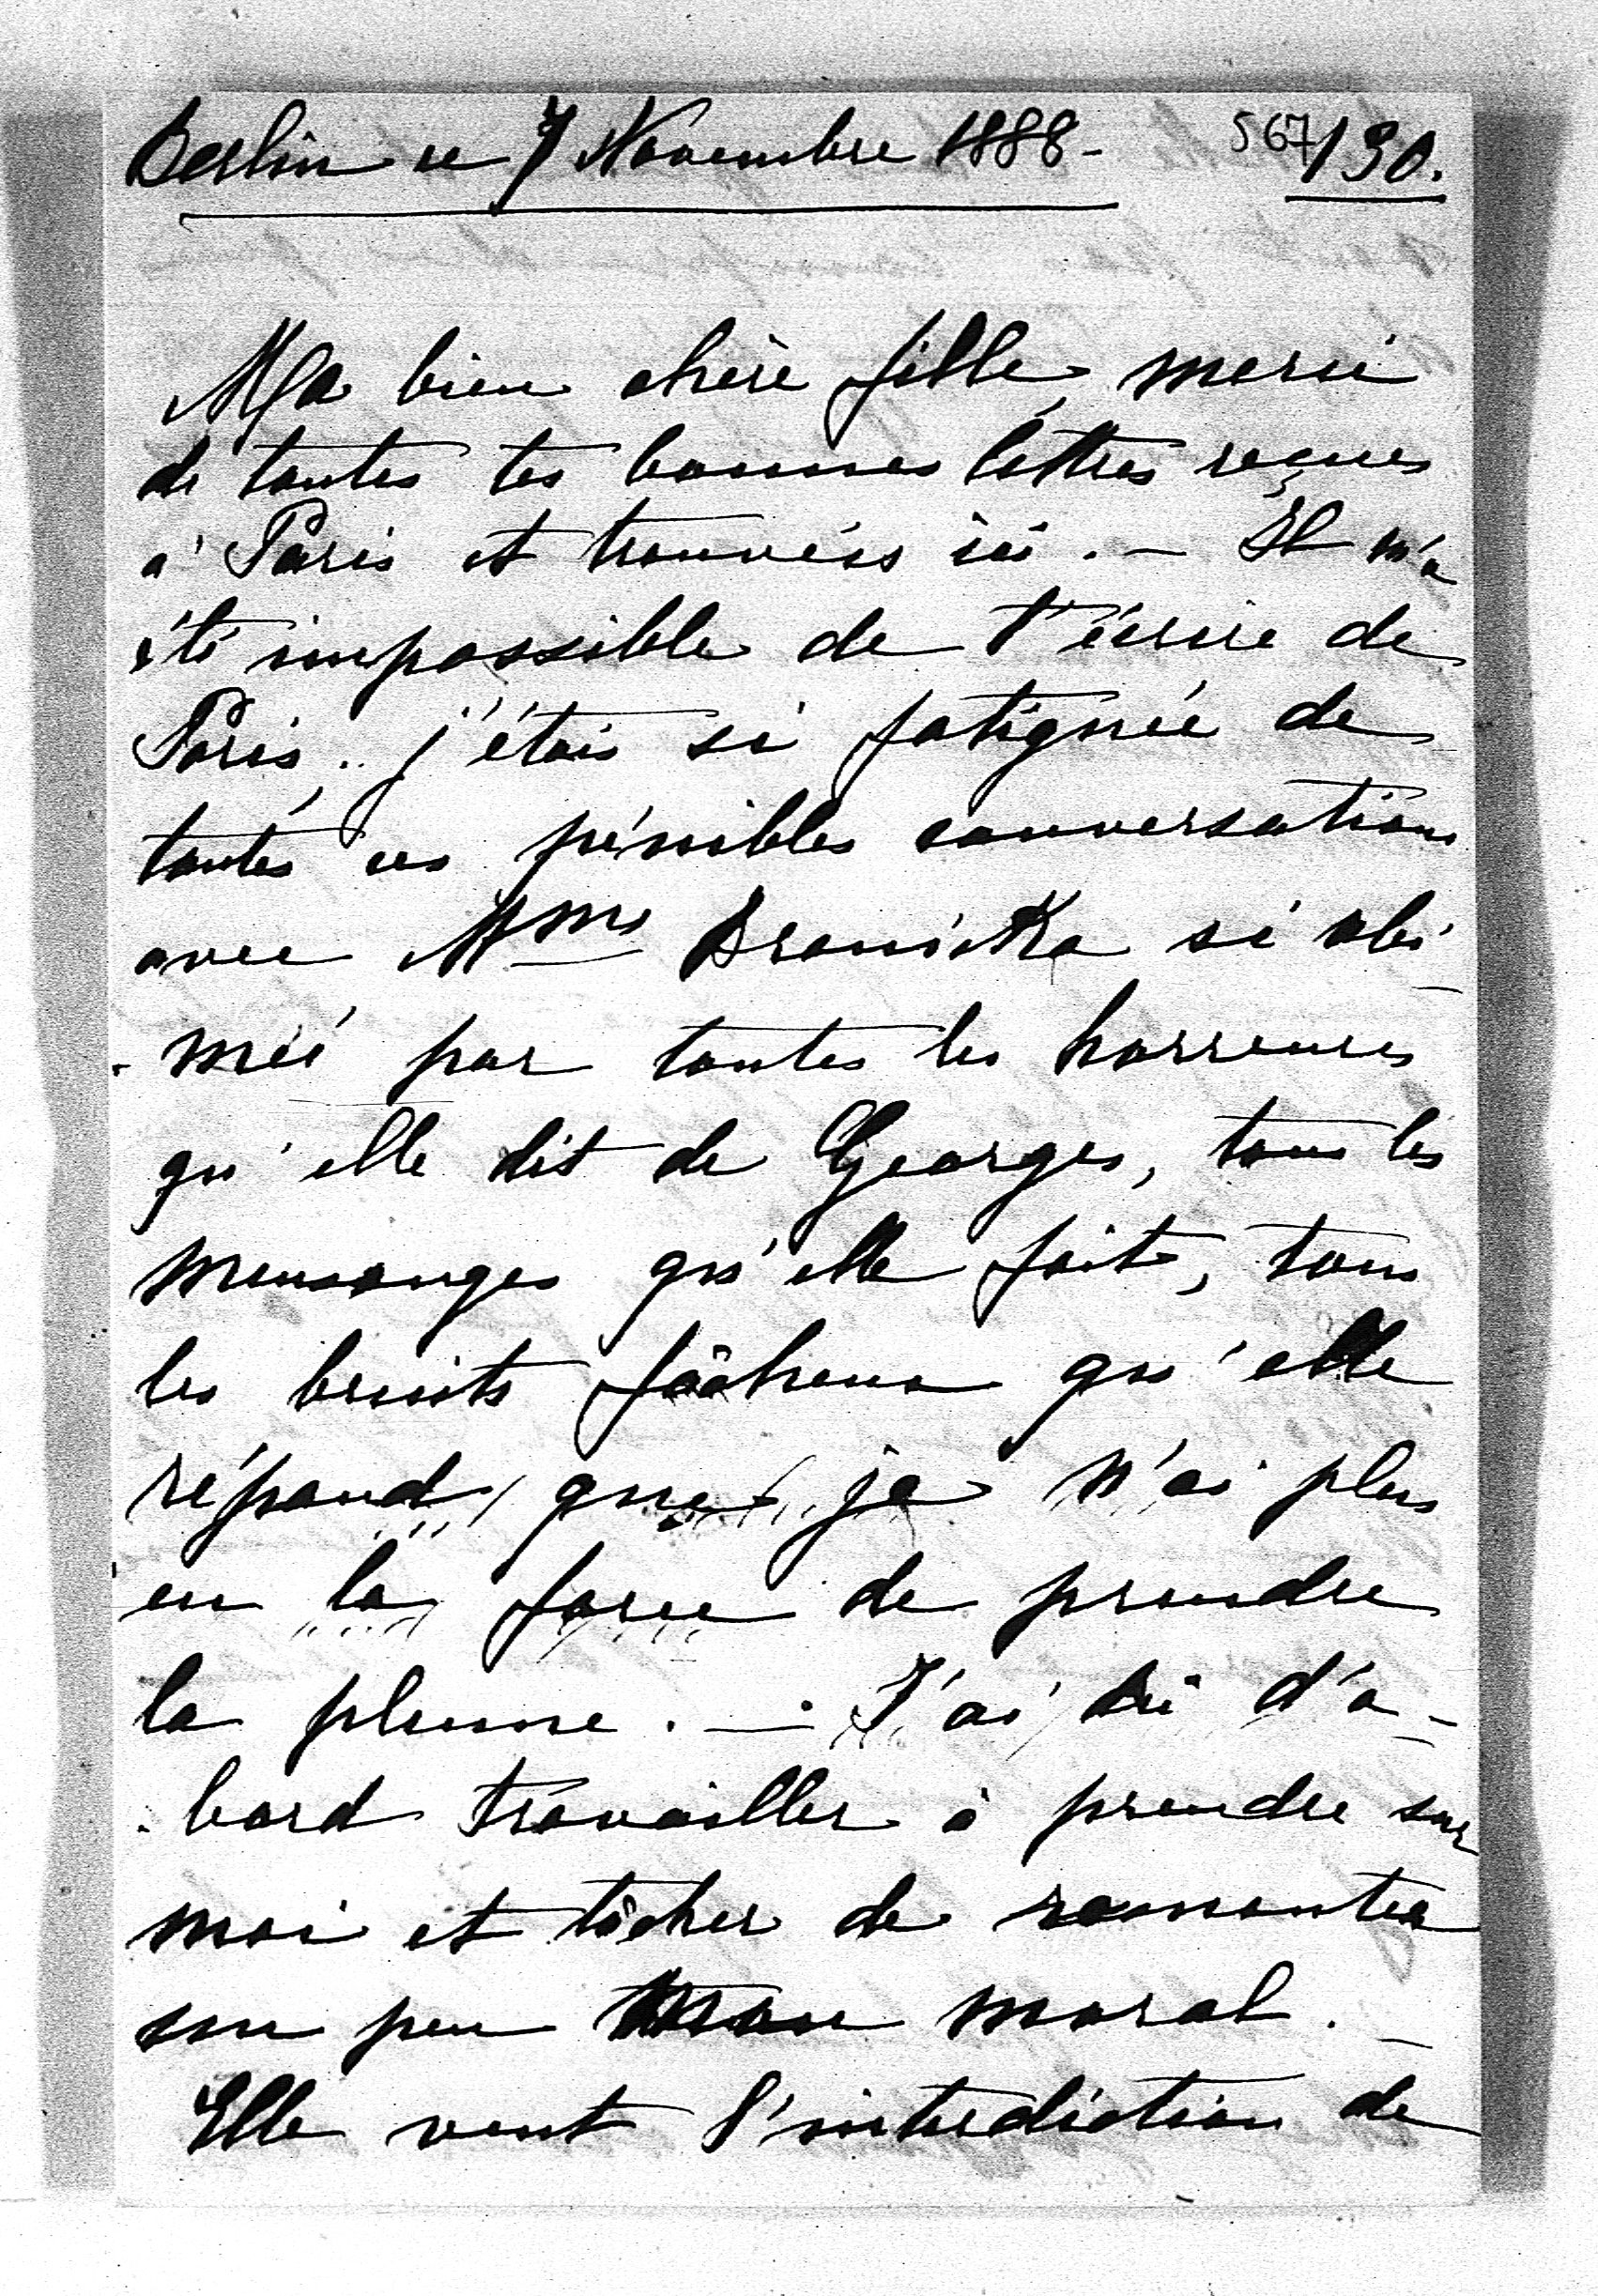 Berlin ce 7 Novembre 1888 - 567/130.
Ma bien chère fille, merci
de toutes tes bonnes lettres reçues
à Paris et trouvées ici. — Il m'a
été impossible de t'écrire de
Paris, j'étais si fatignée de
toutes ces pénibles conversations
avec Mme Branicka si abi
- mée par toutes les horreurs
qu'elle dit de Georges, tous les
mensonges qu'elle fait, tous
les bruits fâcheux qu'elle
répand, que je n'ai plus
eu la force de prendre
la plume. — J'ai dû d'a-
- bord travailler à prendre sur
moi et tâcher de remonter
un peu mon moral. —
Elle veut l'interdiction de